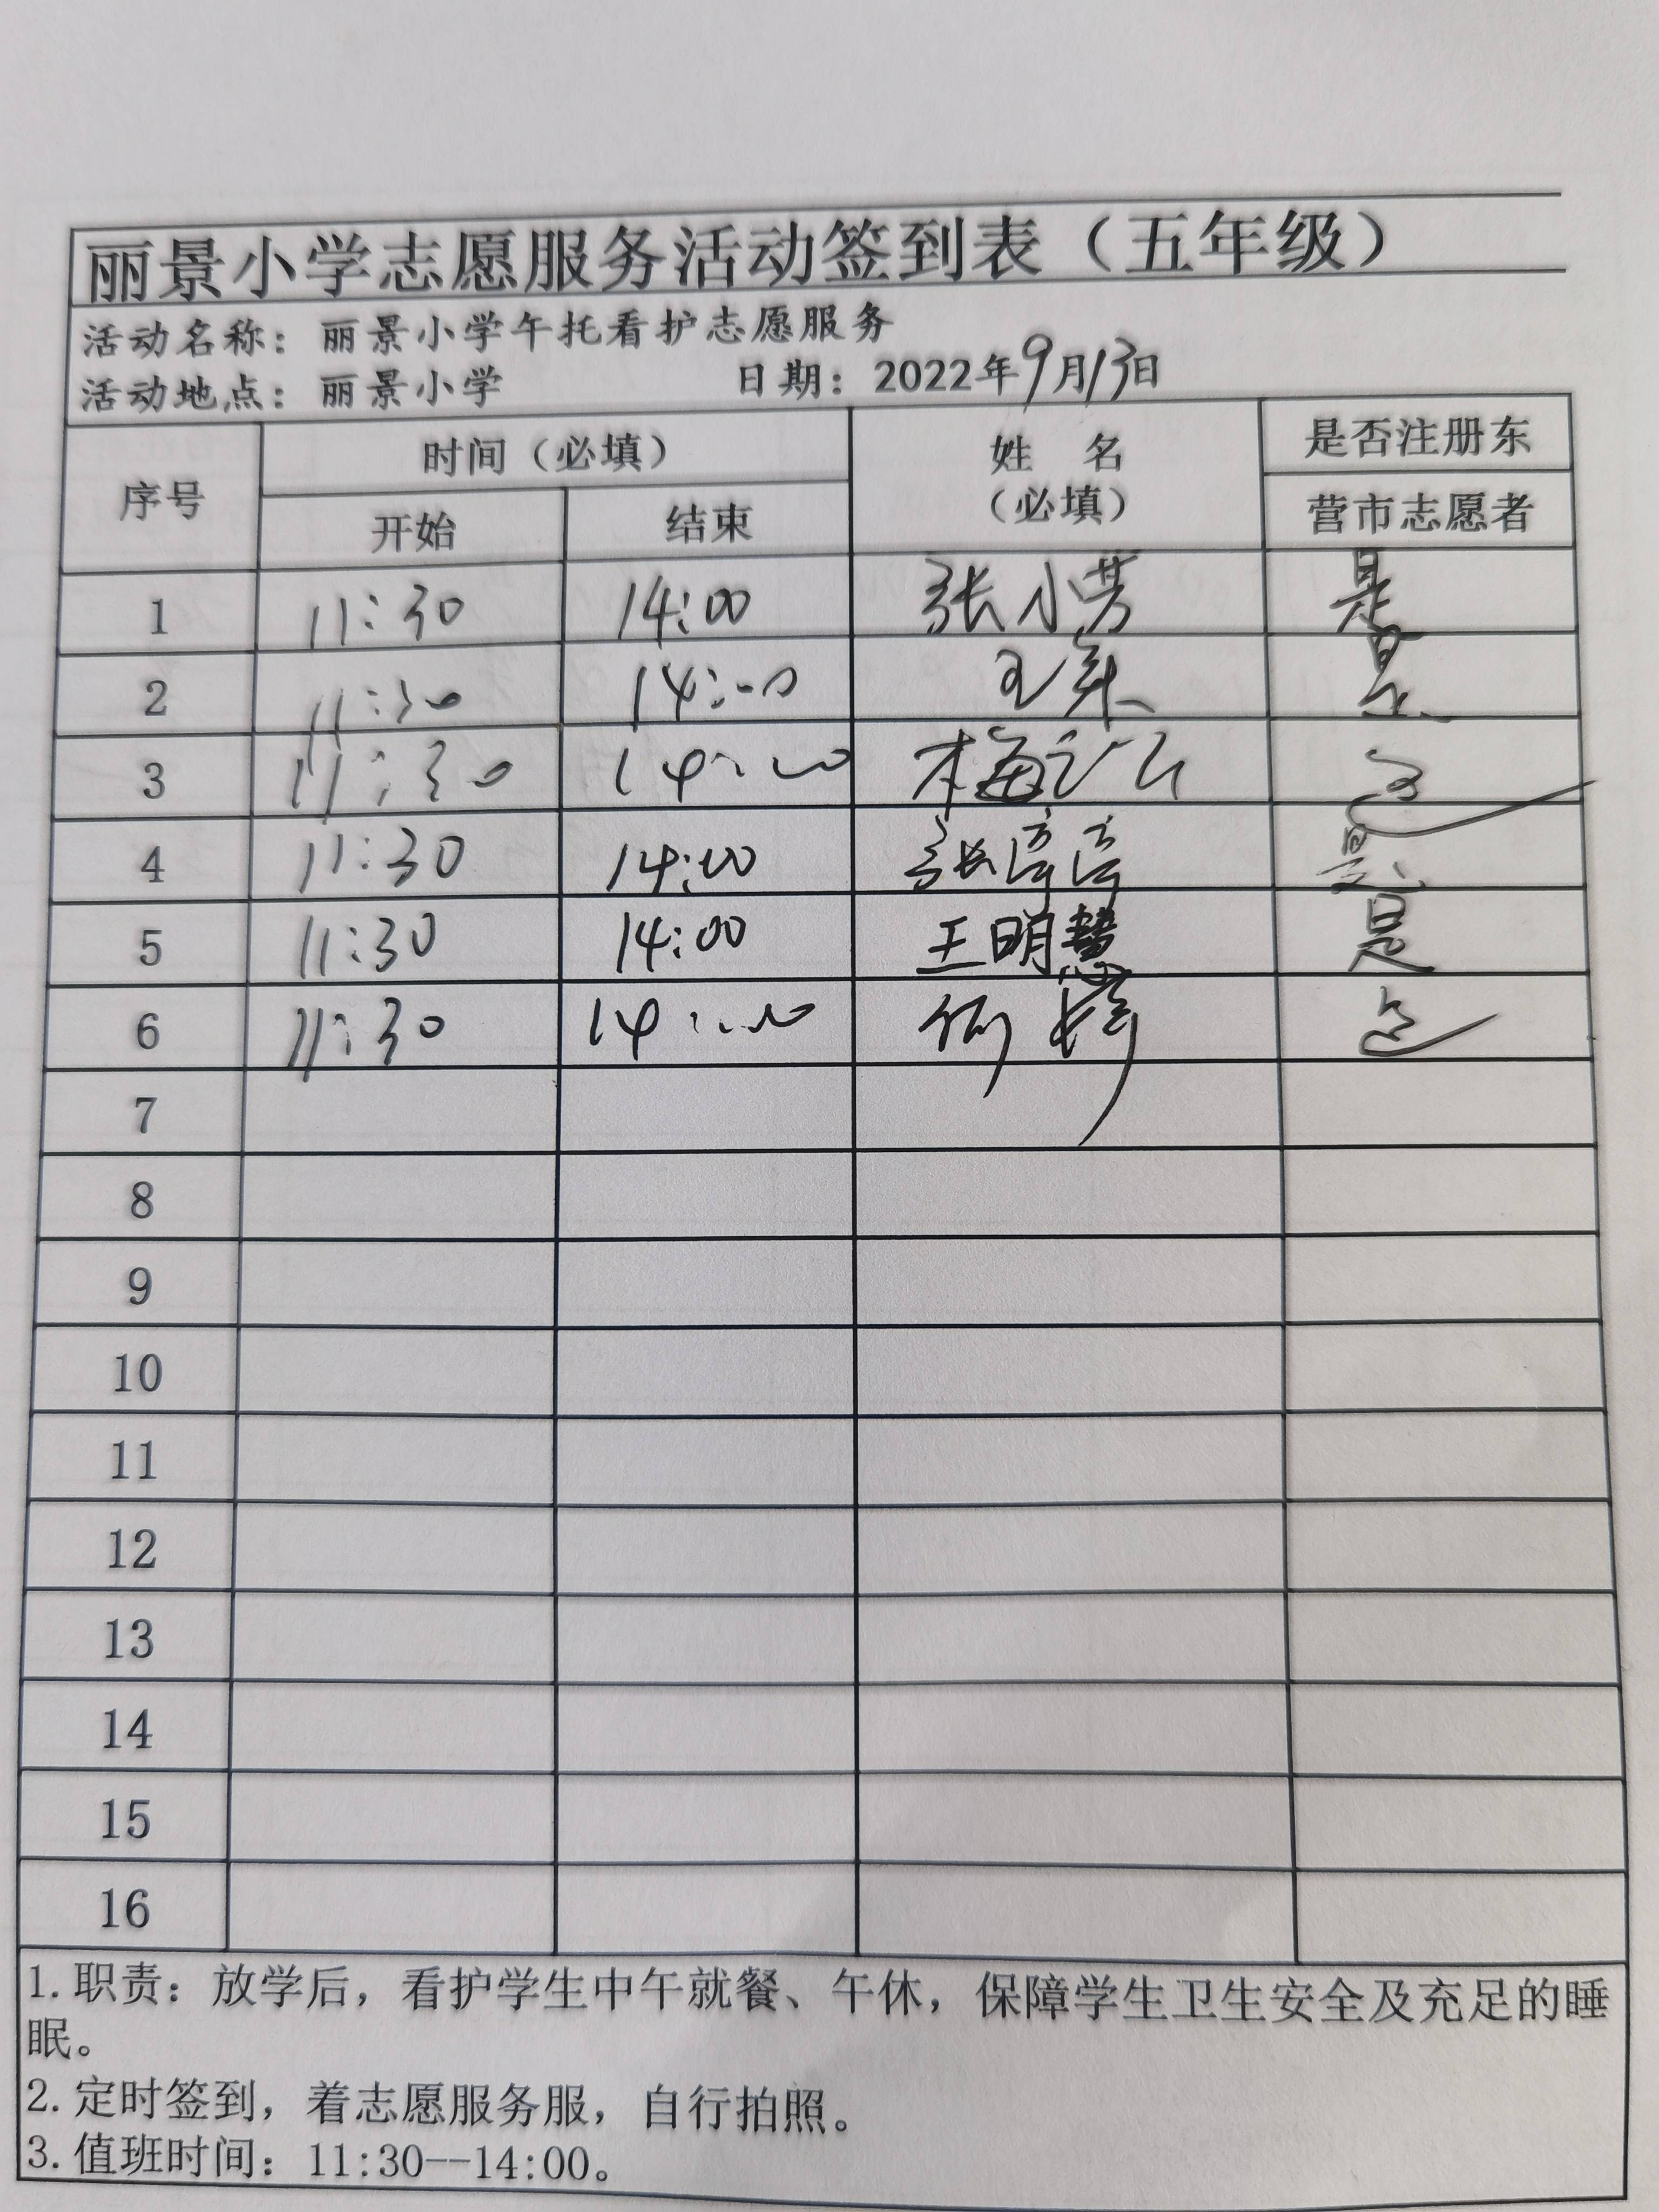 丽景小学志愿服务活动签到表（五年级）
活动名称：丽景小学午托看护志愿服务
活动地点：丽景小学 日期：2022年9月13日
序号 时间（必填） 姓 名（必填） 是否注册东营市志愿者
开始 结束
1 11:30 14:00 张小芳 是
2 11:30 14:00 是
3 11:30 14:00 是
4 11:30 14:00 是
5 11:30 14:00 王明慧 是
6 11:30 14:00 是
7
8
9
10
11
12
13
14
15
16
1.职责：放学后，看护学生中午就餐、午休，保障学生卫生安全及充足的睡
眠。
2.定时签到，着志愿服务服，自行拍照。
3.值班时间：11:30--14:00。